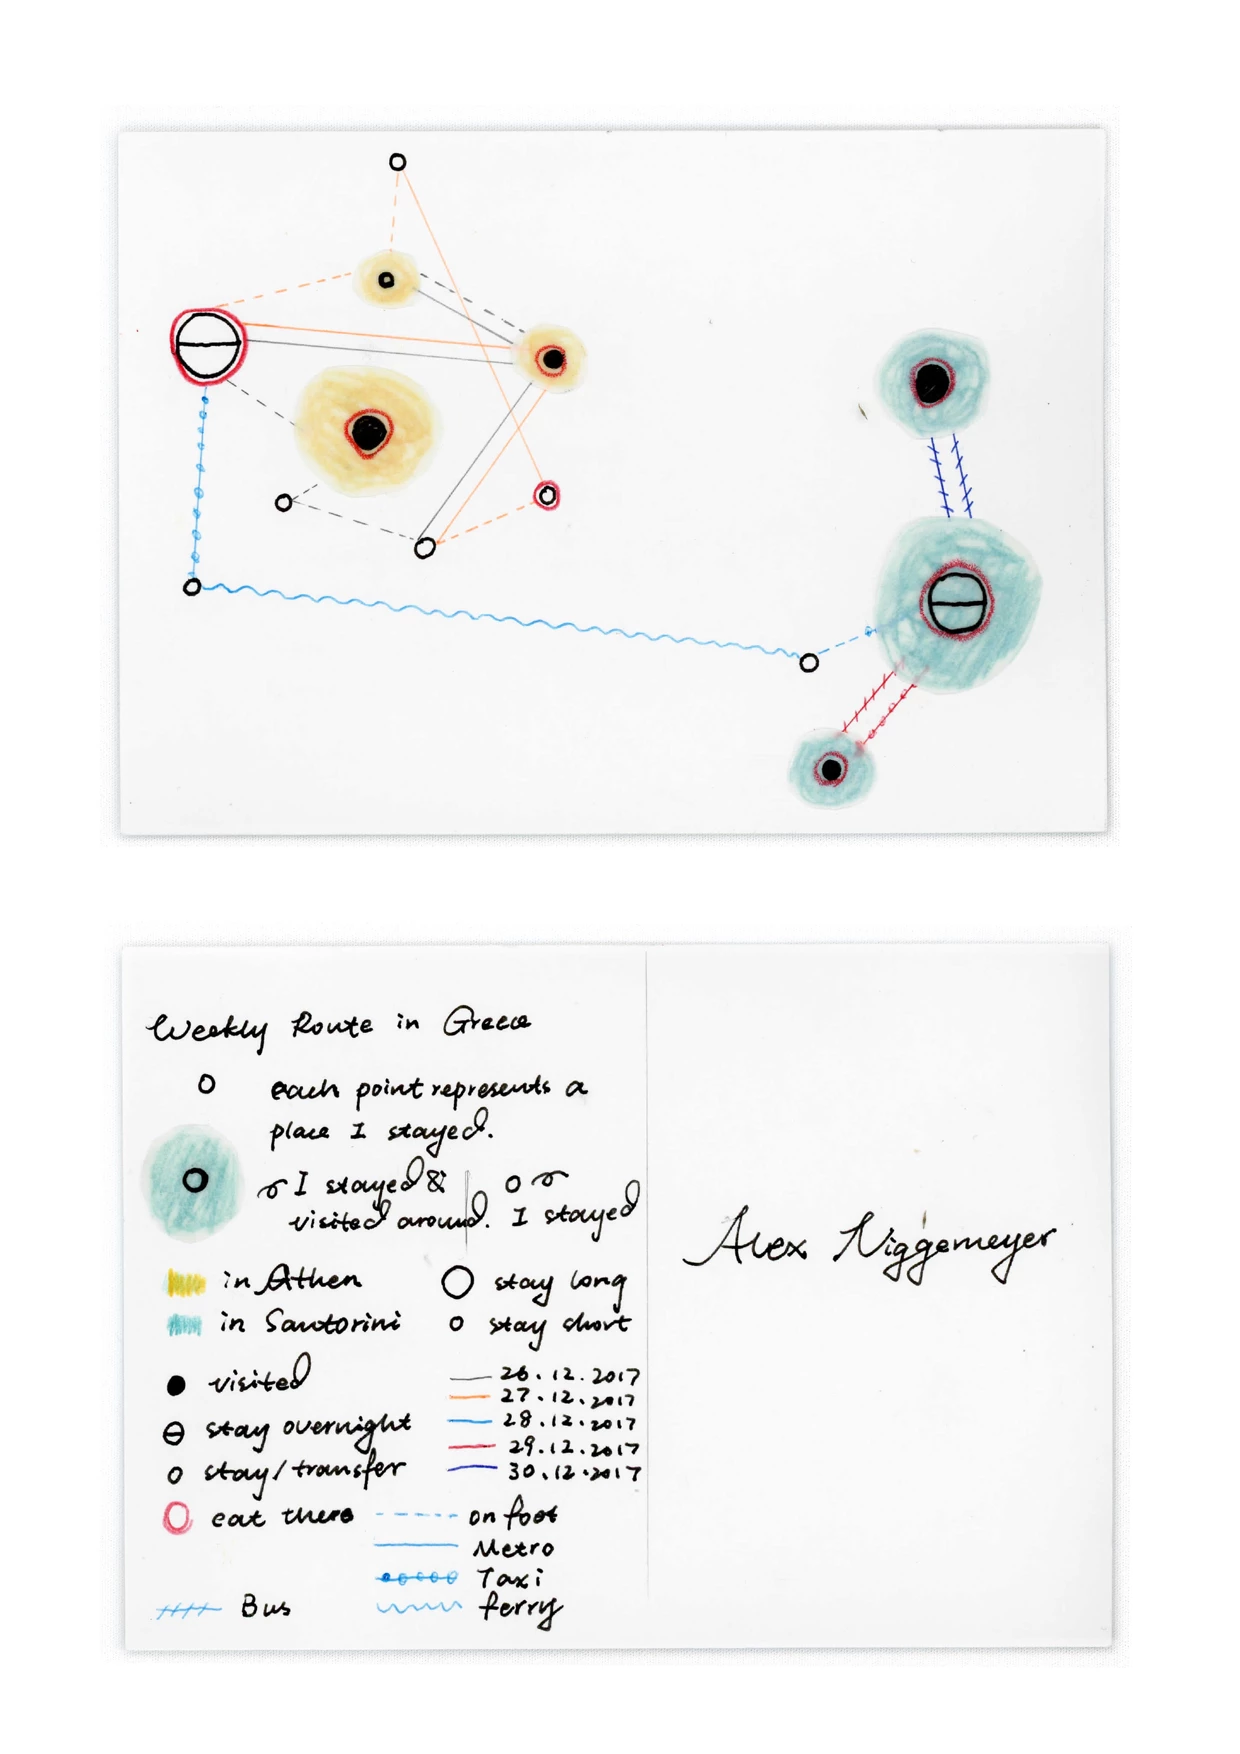 Weekly Route in Greece
each point represents a
place I stayed.
I stayed &
visited around.
I stayed
in Athen
stay long
in Santorini
stay short
visited
26.12.2017
27.12.2017
stay overnight
28.12.2017
29.12.2017
stay/transfer
30.12.2017
eat there
on foot
Metro
Taxi
Bus
ferry
Alex Niggemeyer